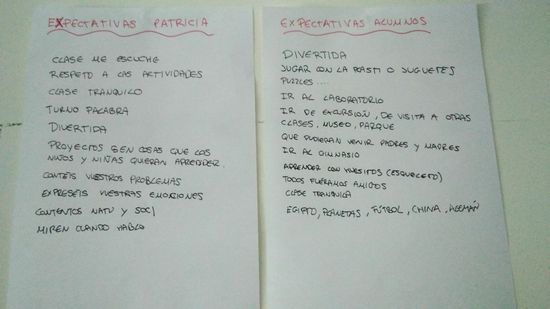 EXPECTATIVAS PATRICIA
CLASE ME ESCUCHE
RESPETO A LAS ACTIVIDADES
CLASE TRANQUILO
TURNO PALABRA
DIVERTIDA
PROYECTOS SEN COSAS QUE LOS
NIÑOS Y NIÑAS QUIERAN APRENDER
CONTÉIS VUESTROS PROBLEMAS
EXPRESÉIS VUESTRAS EMOCIONES
CONTENTOS NATU Y SOCI
MIREN CUANDO HABLO
EXPECTATIVAS ALUMNOS
DIVERTIDA
JUGAR CON LA PLASTI O JUGUETES
PUZZLES....
IR AL LABORATORIO
IR DE EXCURSIÓN, DE VISITA A OTRAS
CLASES, MUSEO, PARQUE
QUE PUDIERAN VENIR PADRES Y MADRES
IR AL GIMNASIO
APRENDER CON HUESITOS (ESQUELETO)
TODOS FUÉRAMOS AMIGOS
CLASE TRANQUILA
EGIPTO, PLANETAS, FÚTBOL, CHINA, ALEMÁN